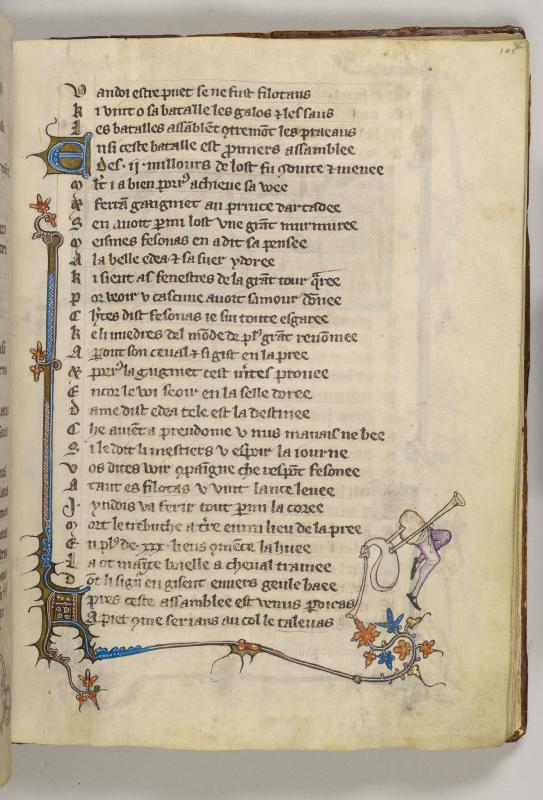 andoi estre puet se ne fust filotaus
K i vint o sa bataille les galos et les saus
L es batalles assãblẽt
nsi ceste batalle est p̃miers assamblee
Des .ij. millours de lost fu 9duite et menee
a bien achieue sa
ferrã gaugmet au prince darcadee
S en auoit p̃mi lost vne grãt murmuree
M eismes fesonas en a dit sa pensee
A la belle edea et sa suer ydoree
K i sient as fenestres de la grãt tour q̃ree
P or veoir v cascune auoit samour dõnee
C dist fesonas ie sui toute esgaree
K e li miedres del mõde de pl⁹ grãt renõmee
A p̃dout son ceual et si gist en la pree
la gugmet cest prouee
E ncor le voi seoir en la selle doree
D ame dist edea tele est la destinee
C he auiẽt a preudome v nus mauais ne bee
S i le doit li mestiers v espoir la iourne
V os dites voir 9paigne che respõt fesonee
A tant es filotas v vint lance leuee
yndois va ferir tout p̃mi la coree
M ort le trebuche a t̃re enmi lieu de la pree
E n pl⁹ de .xxx. lieus 9mẽce la huee
L a ot mainte boielle a cheual trainee
D õt li en gisent enuers geule baee
A pres ceste assamblee est venus p̃dicas
A piet 9me serians au col le taleuas